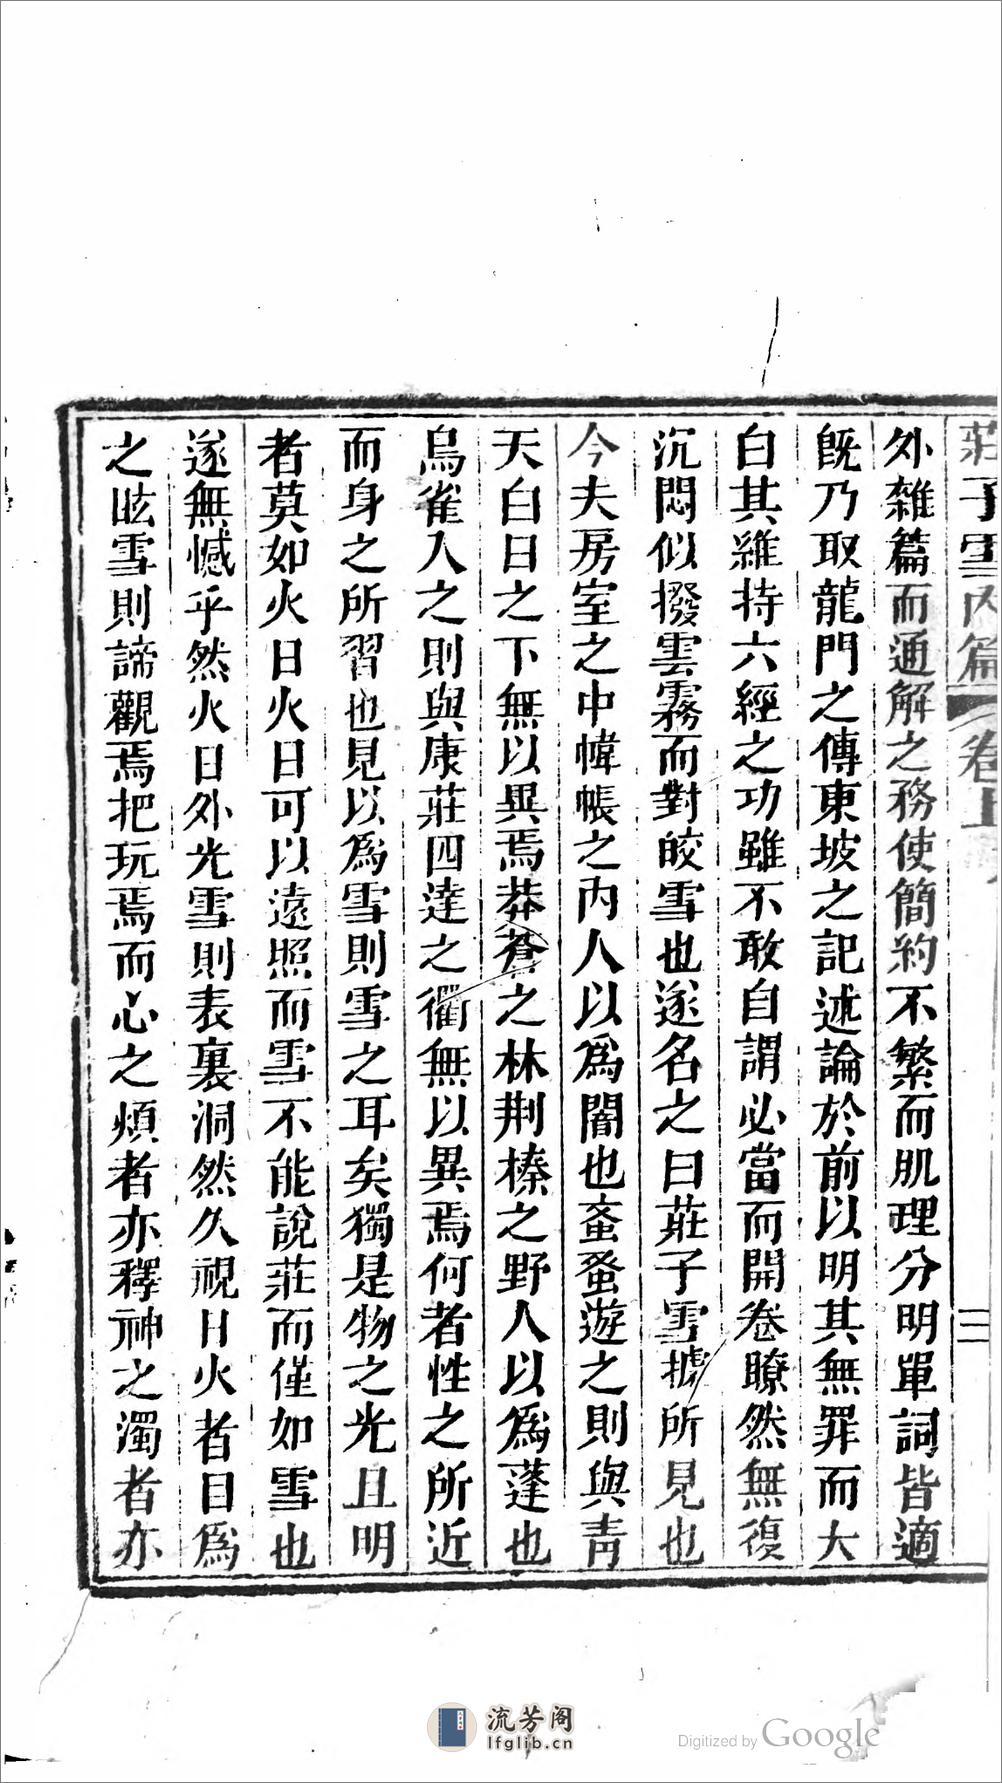 莊子雪內篇 卷上 二
外雜篇而通解之務使簡約不繁而肌理分明單詞皆適
旣乃取龍門之傳東坡之記述論於前以明其無罪而大
白其維持六經之功雖不敢自謂必當而開卷瞭然無復
沉悶似撥雲霧而對皎雪也遂名之曰莊子雪據所見也
今夫房室之中幃帳之內人以為闇也蚤蝨遊之則與青
天白日之下無以異焉莽蒼之林荆榛之野人以為蓬也
烏雀人之則與康莊四達之衢無以異焉何者性之所近
而身之所習也見以為雪則雪之耳矣獨是物之光且明
者莫如火日火日可以遠照而雪不能說莊而僅如雪也
遂無憾乎然火日外光雪則表裏洞然久視日火者目為
之眩雪則諦觀焉把玩焉而心之煩者亦釋神之濁者亦
流芳阁
lfglib.cn
Digitized by Google